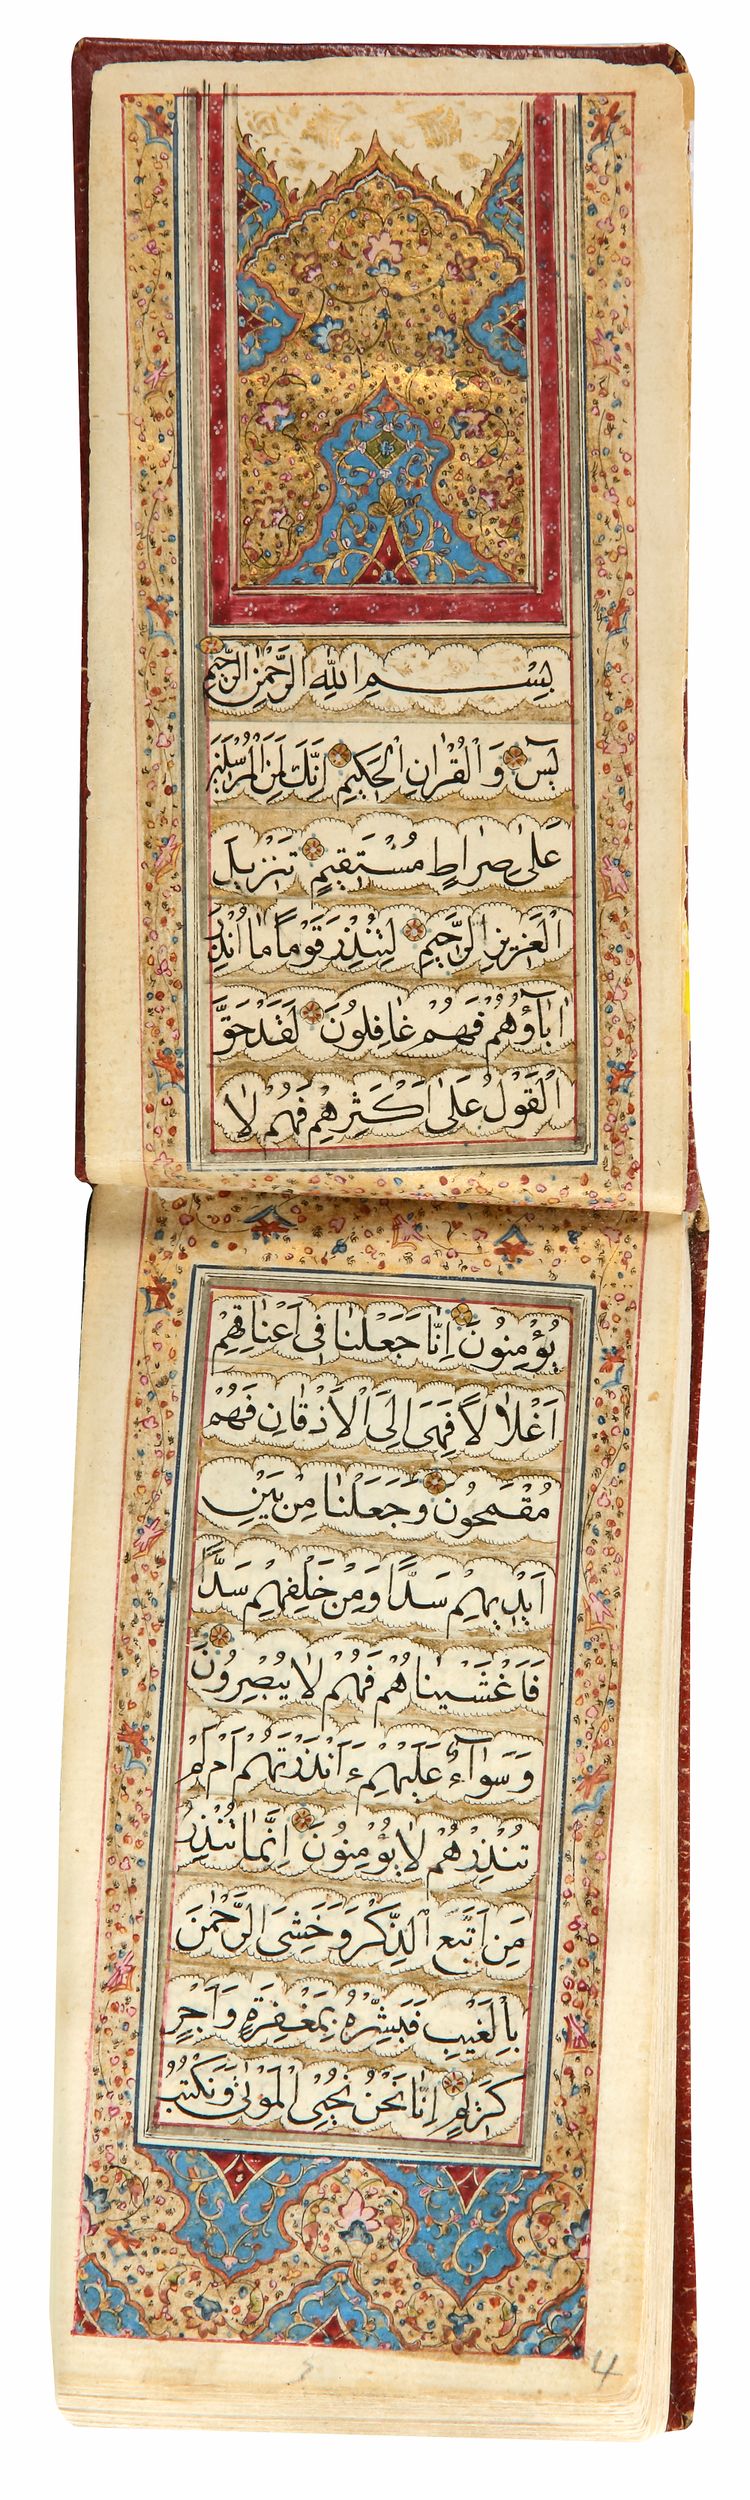 بِسْمِ اللّٰهِ الرَّحْمٰنِ الرَّحِيمِ
يٰسٓ وَالْقُرْاٰنِ الْحَكِيمِ اِنَّكَ لَمِنَ الْمُرْسَلِينَ
عَلٰى صِرَاطٍ مُسْتَقِيمٍ تَنْزِيلَ
الْعَزِيزِ الرَّحِيمِ لِتُنْذِرَ قَوْمًا مٰا اُنْذِرَ
اٰبٰٓاؤُهُمْ فَهُمْ غٰافِلُونَ لَقَدْ حَقَّ
الْقَوْلُ عَلٰى اَكْثَرِهِمْ فَهُمْ لٰا
يُؤْمِنُونَ اِنّٰا جَعَلْنٰا فِى اَعْنٰاقِهِمْ
اَغْلٰالًا فَهِىَ اِلَى الْاَذْقٰانِ فَهُمْ
مُقْمَحُونَ وَجَعَلْنٰا مِنْ بَيْنِ
اَيْدِيهِمْ سَدًّا وَمِنْ خَلْفِهِمْ سَدًّا
فَاَغْشَيْنٰاهُمْ فَهُمْ لٰا يُبْصِرُونَ
وَسَوٰٓاءٌ عَلَيْهِمْ ءَاَنْذَرْتَهُمْ اَمْ لَمْ
تُنْذِرْهُمْ لٰا يُؤْمِنُونَ اِنَّمٰا تُنْذِرُ
مَنِ اتَّبَعَ الذِّكْرَ وَخَشِىَ الرَّحْمٰنَ
بِالْغَيْبِ فَبَشِّرْهُ بِمَغْفِرَةٍ وَاَجْرٍ
كَرِيمٍ اِنّٰا نَحْنُ نُحْيِى الْمَوْتٰى وَنَكْتُبُ
4